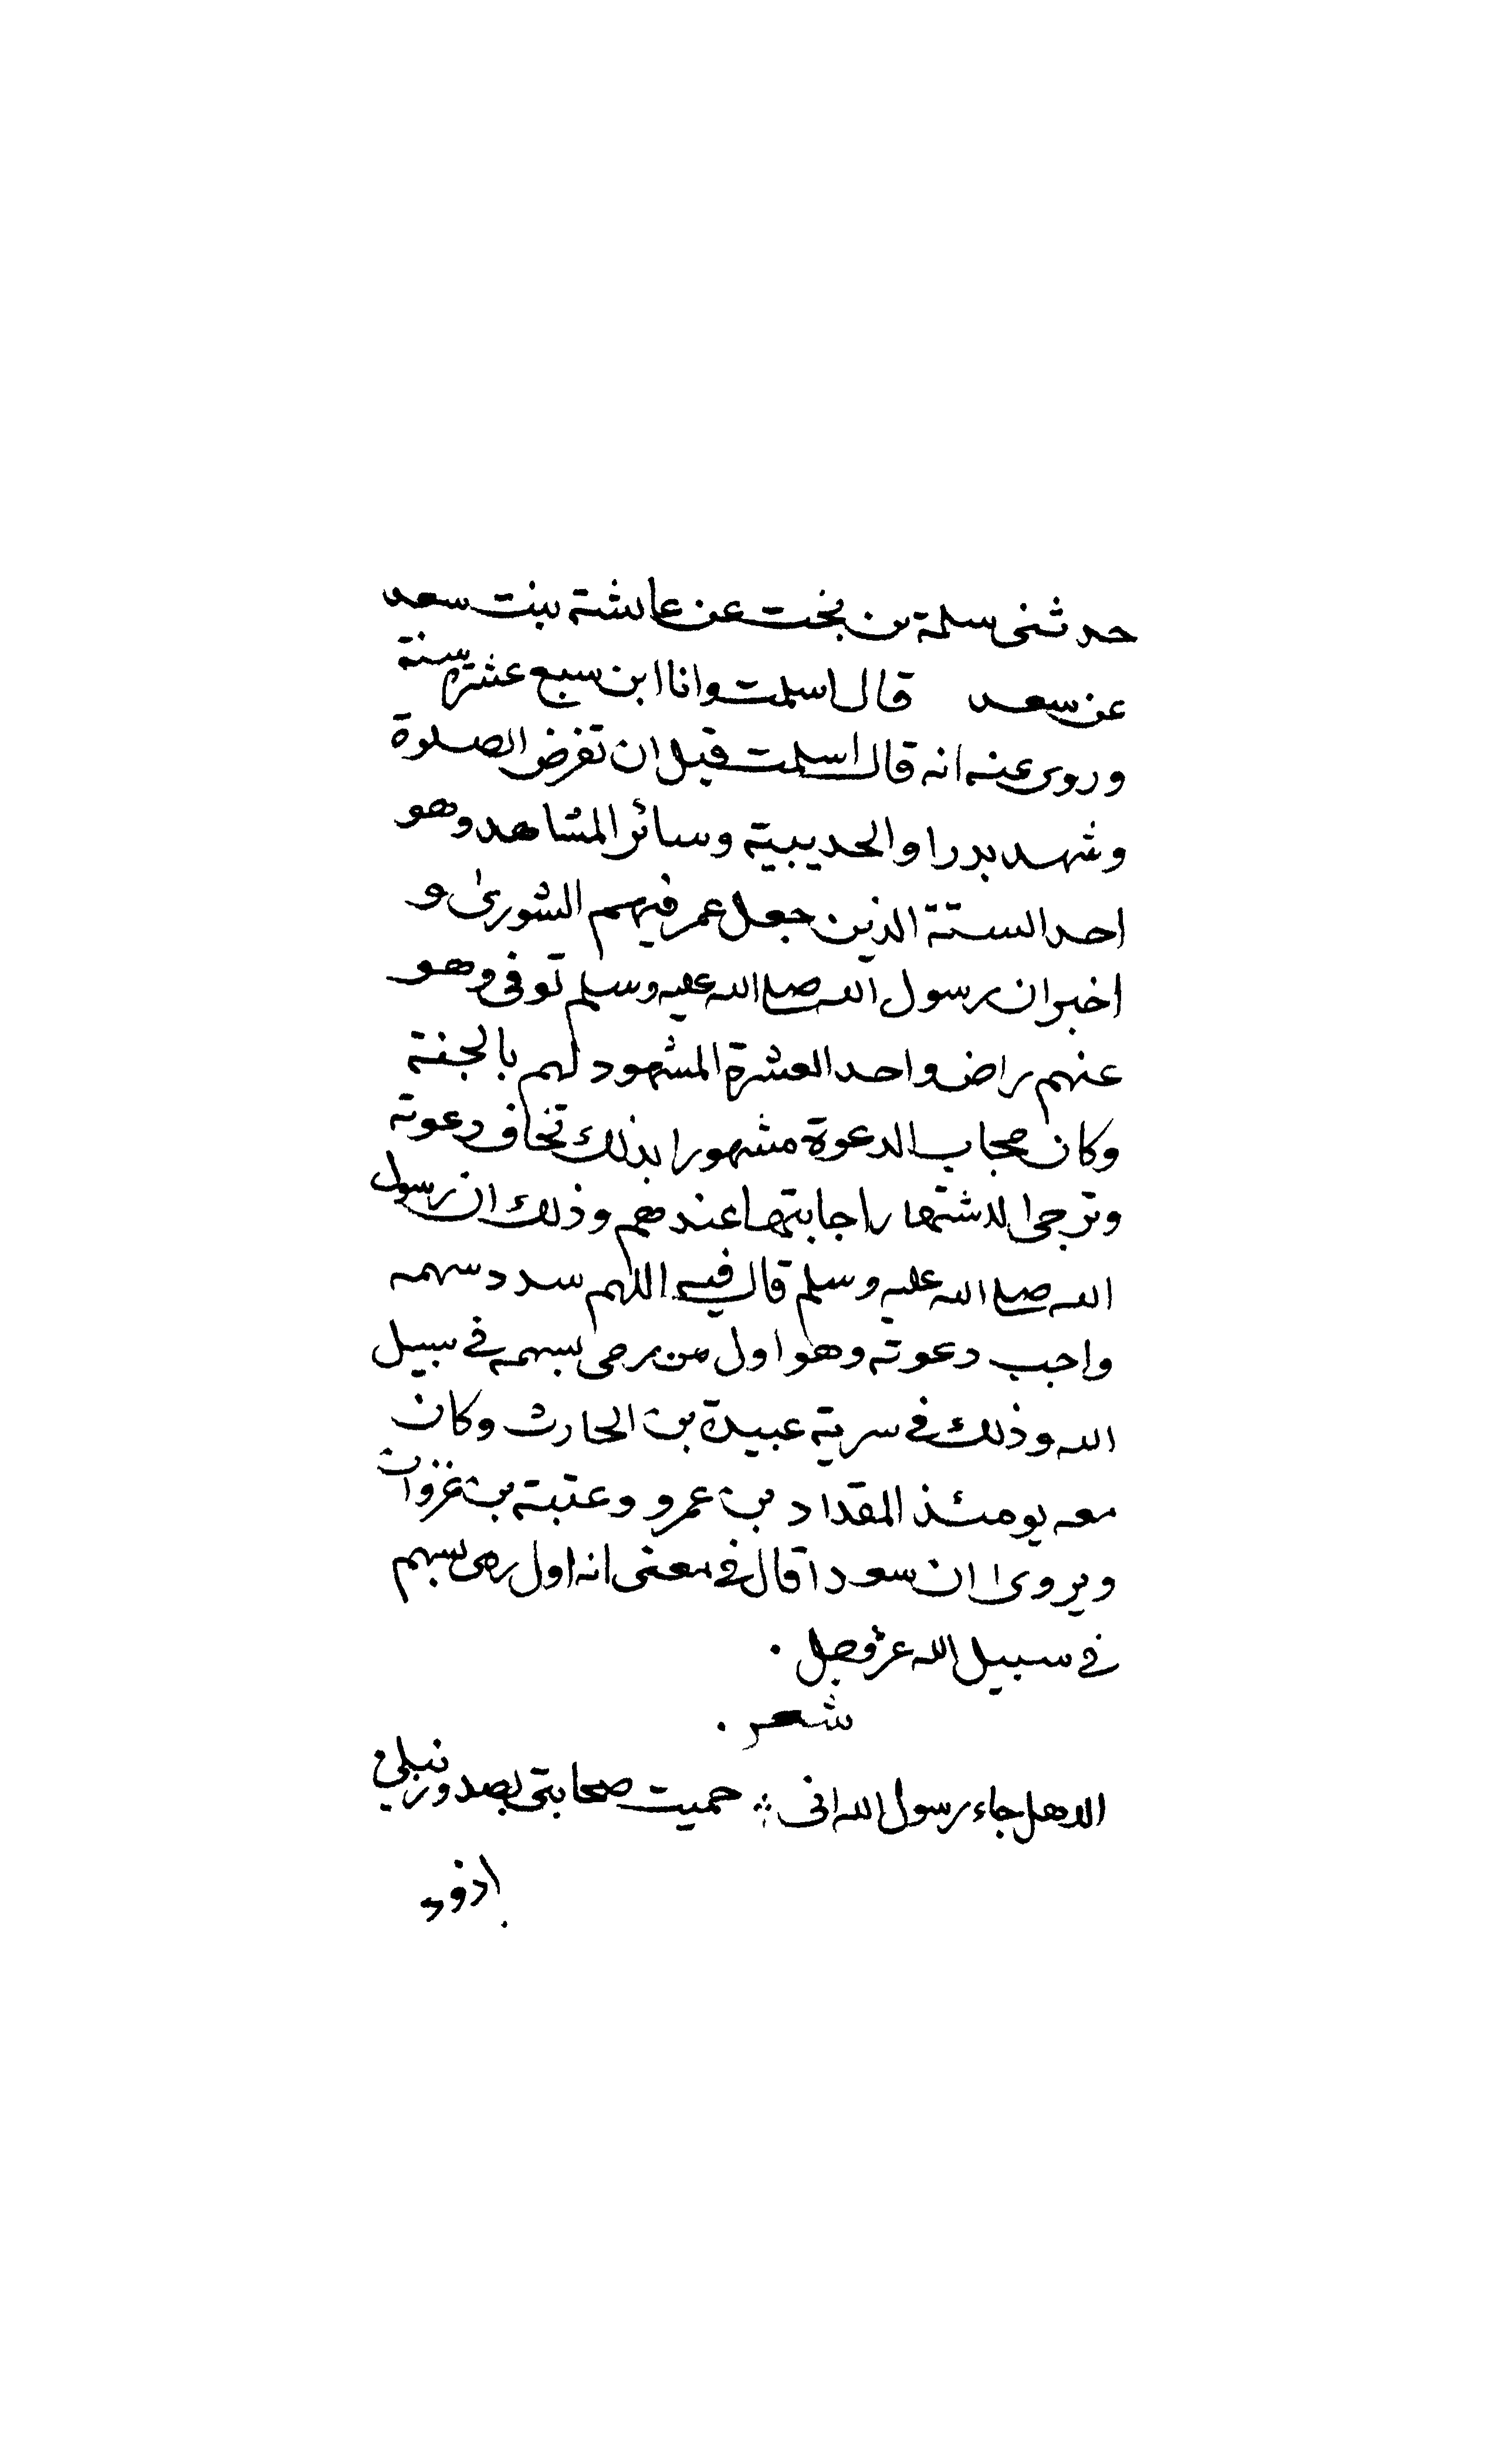 حدثنى سلمة بن بخت عن عايشة بنت سعد
عن سعد قال اسلمت وانا ابن سبع عشره سنة
وروى عنه انه قال اسلمت قبل ان تفرض الصلوة
وشهد بدرا والحديبية وسائر المشاهد وهو
احد الستة الذين جعل عمر فيهم الشورى و
اخبر ان رسول الله صلى الله عليه وسلم توفى وهو
عنهم راض واحد العشرة المشهود لهم بالجنة
وكان مجاب الدعوة مشهورا بذلك تخاف دعوته
وترجى لاشتهار اجابتها عندهم وذلك ان رسول
الله صلى الله عليه وسلم قال فيه اللهم سدد سهمه
واجب دعوته وهو اول من رمى بسهمه فى سبيل
الله وذلك فى سرية عبيدة بن الحارث وكان
معه يومئذ المقداد بن عمرو وعتبة بن غزوان
ويروى ان سعدا قال فى معنى انه اول رمى بسهم
فى سبيل الله عز وجل .
شعر .
الا هل جاء رسول الله انى ؞ حميت صحابتى بصدور نبلى
اذود